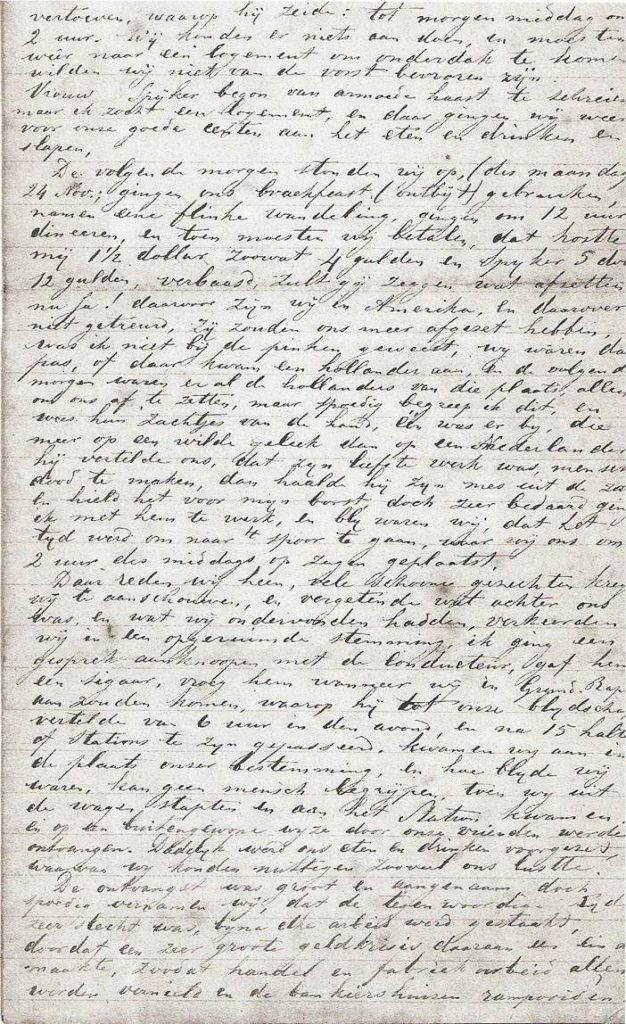 vertoeven, waarop hij zeide: tot morgen middag om
2 uur. Wij konden er niets aan doen, en moesten
wéér naar een logement om onderdak te komen
wilden wij niet van de vorst bevroren zijn.
Vrouw Spijker begon van armoede haast te schreien
maar ik zocht een logement, en daar gingen wij weer
voor onze goede centen aan het eten en drinken en
slapen,
De volgende morgen stonden wij op, (dus maandag
24 Nov.; gingen ons breekfeast (ontbijt) gebruiken,
namen eene flinke wandeling, gingen om 12 uur
dineeren, en toen moesten wij betalen, dat kostte
mij 1½ dollar, zoowat 4 gulden en Spyker 5 dol
12 gulden, verbaasd, zult gij zeggen wat afzetten
nu ja! daarvoor zijn wij in Amerika, en daarover
niet getreurd, zij zouden ons meer afgezet hebben,
was ik niet bij de pinken geweest, wy waren daar
pas, of daar kwam een hollander aan, en de volgende
morgen waren er al de hollanders van die plaats, allen
om ons af te zetten, maar spoedig begreep ik dit, en
wees hun zachtjes van de hand, één was er by, die
meer op een wilde geleek dan op een Nederlander
hij vertelde ons, dat zyn liefste werk was, menschen
dood te maken, dan haald hij zyn mes uit de zak
en hield het voor myn borst, doch zeer bedaard ging
ik met hem te werk, en bly waren wij, dat het
tyd werd om naar 't spoor te gaan, waar wij ons om
2 uur des middags op zagen geplaatst.
Daar reden wij heen, vele schoone gezechten kreg
wij te aanschouwen, en vergetende wat achter ons
was, en wat wij ondervonden hadden, verkeerden
wij in een opgeruimde stemming, ik ging een
gesprek aanknoopen met de Conducteur, gaf hem
een sigaar, vroeg hem wanneer wij in Grand Rap
aan zouden komen, waarop hij tot onze blydschap
vertelde van 6 uur in den avond, en na 15 halte
of Stations te zyn gepasseerd, kwamen wy aan in
de plaats onser bestemming, en hoe blyde wij
waren, kan geen mensch begrijpen, toen wij uit
de wagen stapten en aan het Station kwamen,
en op een buitengewone wyze door onze vrienden werden
ontvangen. Dadelyk werd ons eten en drinken voorgezet,
waarvan wij konden nuttigen zooveel ons lustte.
De ontvangst was groot en aangenaam doch
spoedig vernamen wij, dat de tegenwoordige tyd
zeer slecht was, byna elke arbeid werd gestaakt,
doordat een zeer groote geldkrisis daaraan een eind
maakte, zoodat handel en fabriek arbeid allen
werden vernield en de bankiershuizen